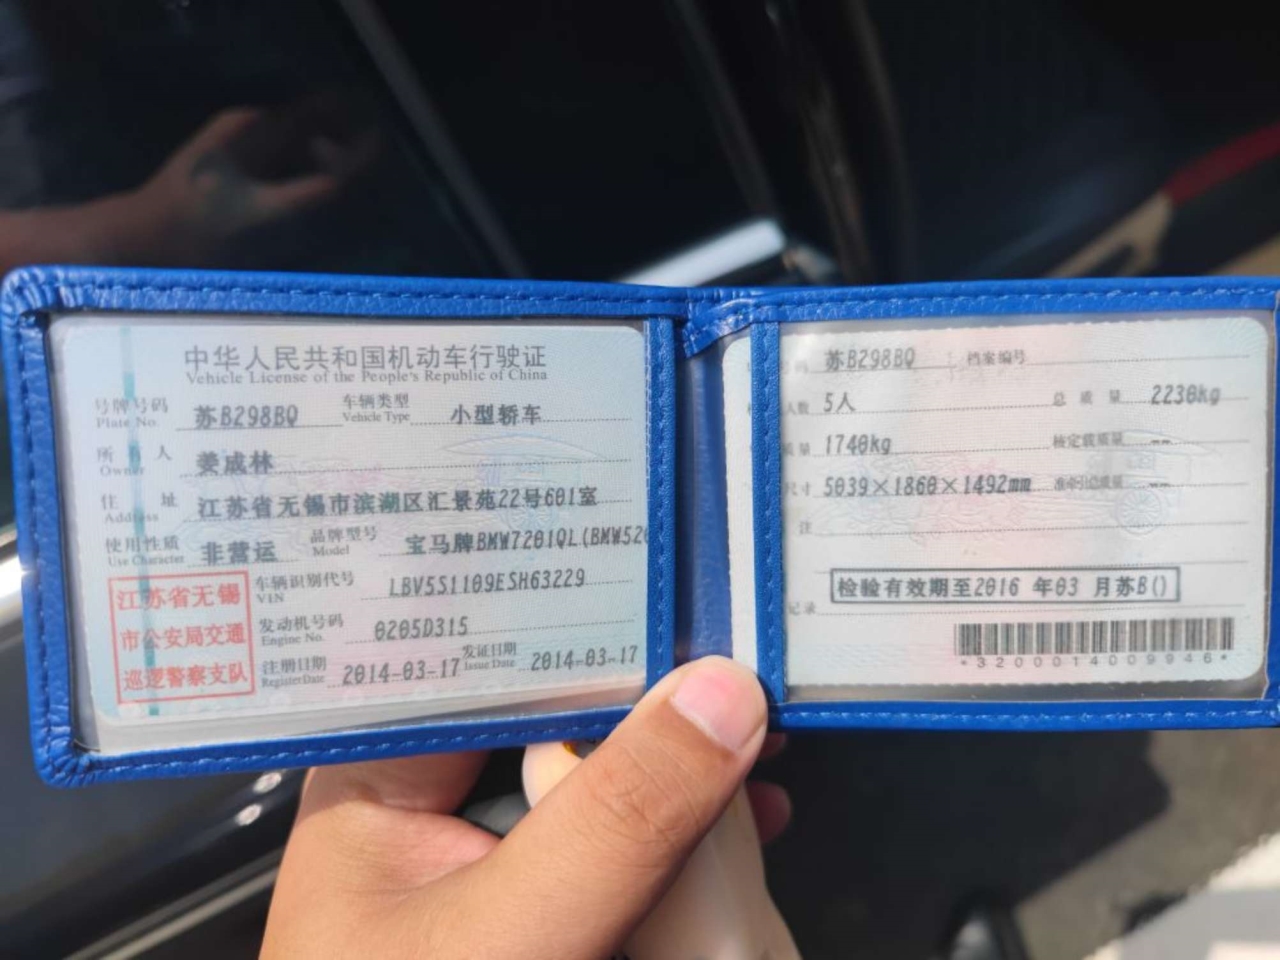 中华人民共和国机动车行驶证
Vehicle License of the People's Republic of China
号牌号码 苏B298BQ 车辆类型 小型轿车
Plate No. Vehicle Type
所有人 姜成林
Owner
住址 江苏省无锡市滨湖区汇景苑22号601室
Address
使用性质 非营运 品牌型号 宝马牌BMW7201QL(BMW520
Use Character Model
江苏省无锡
市公安局交通
巡逻警察支队
车辆识别代号 LBV5S1109ESH63229
VIN
发动机号码 0205D315
Engine No.
注册日期 2014-03-17 发证日期 2014-03-17
Register Date Issue Date
苏B298BQ 档案编号
人数 5人 总质量 2230kg
质量 1740kg 核定载质量 --
尺寸 5039×1860×1492mm 准牵引总质量 --
注
检验有效期至2016 年03 月苏B()
记录
*3200014009946*